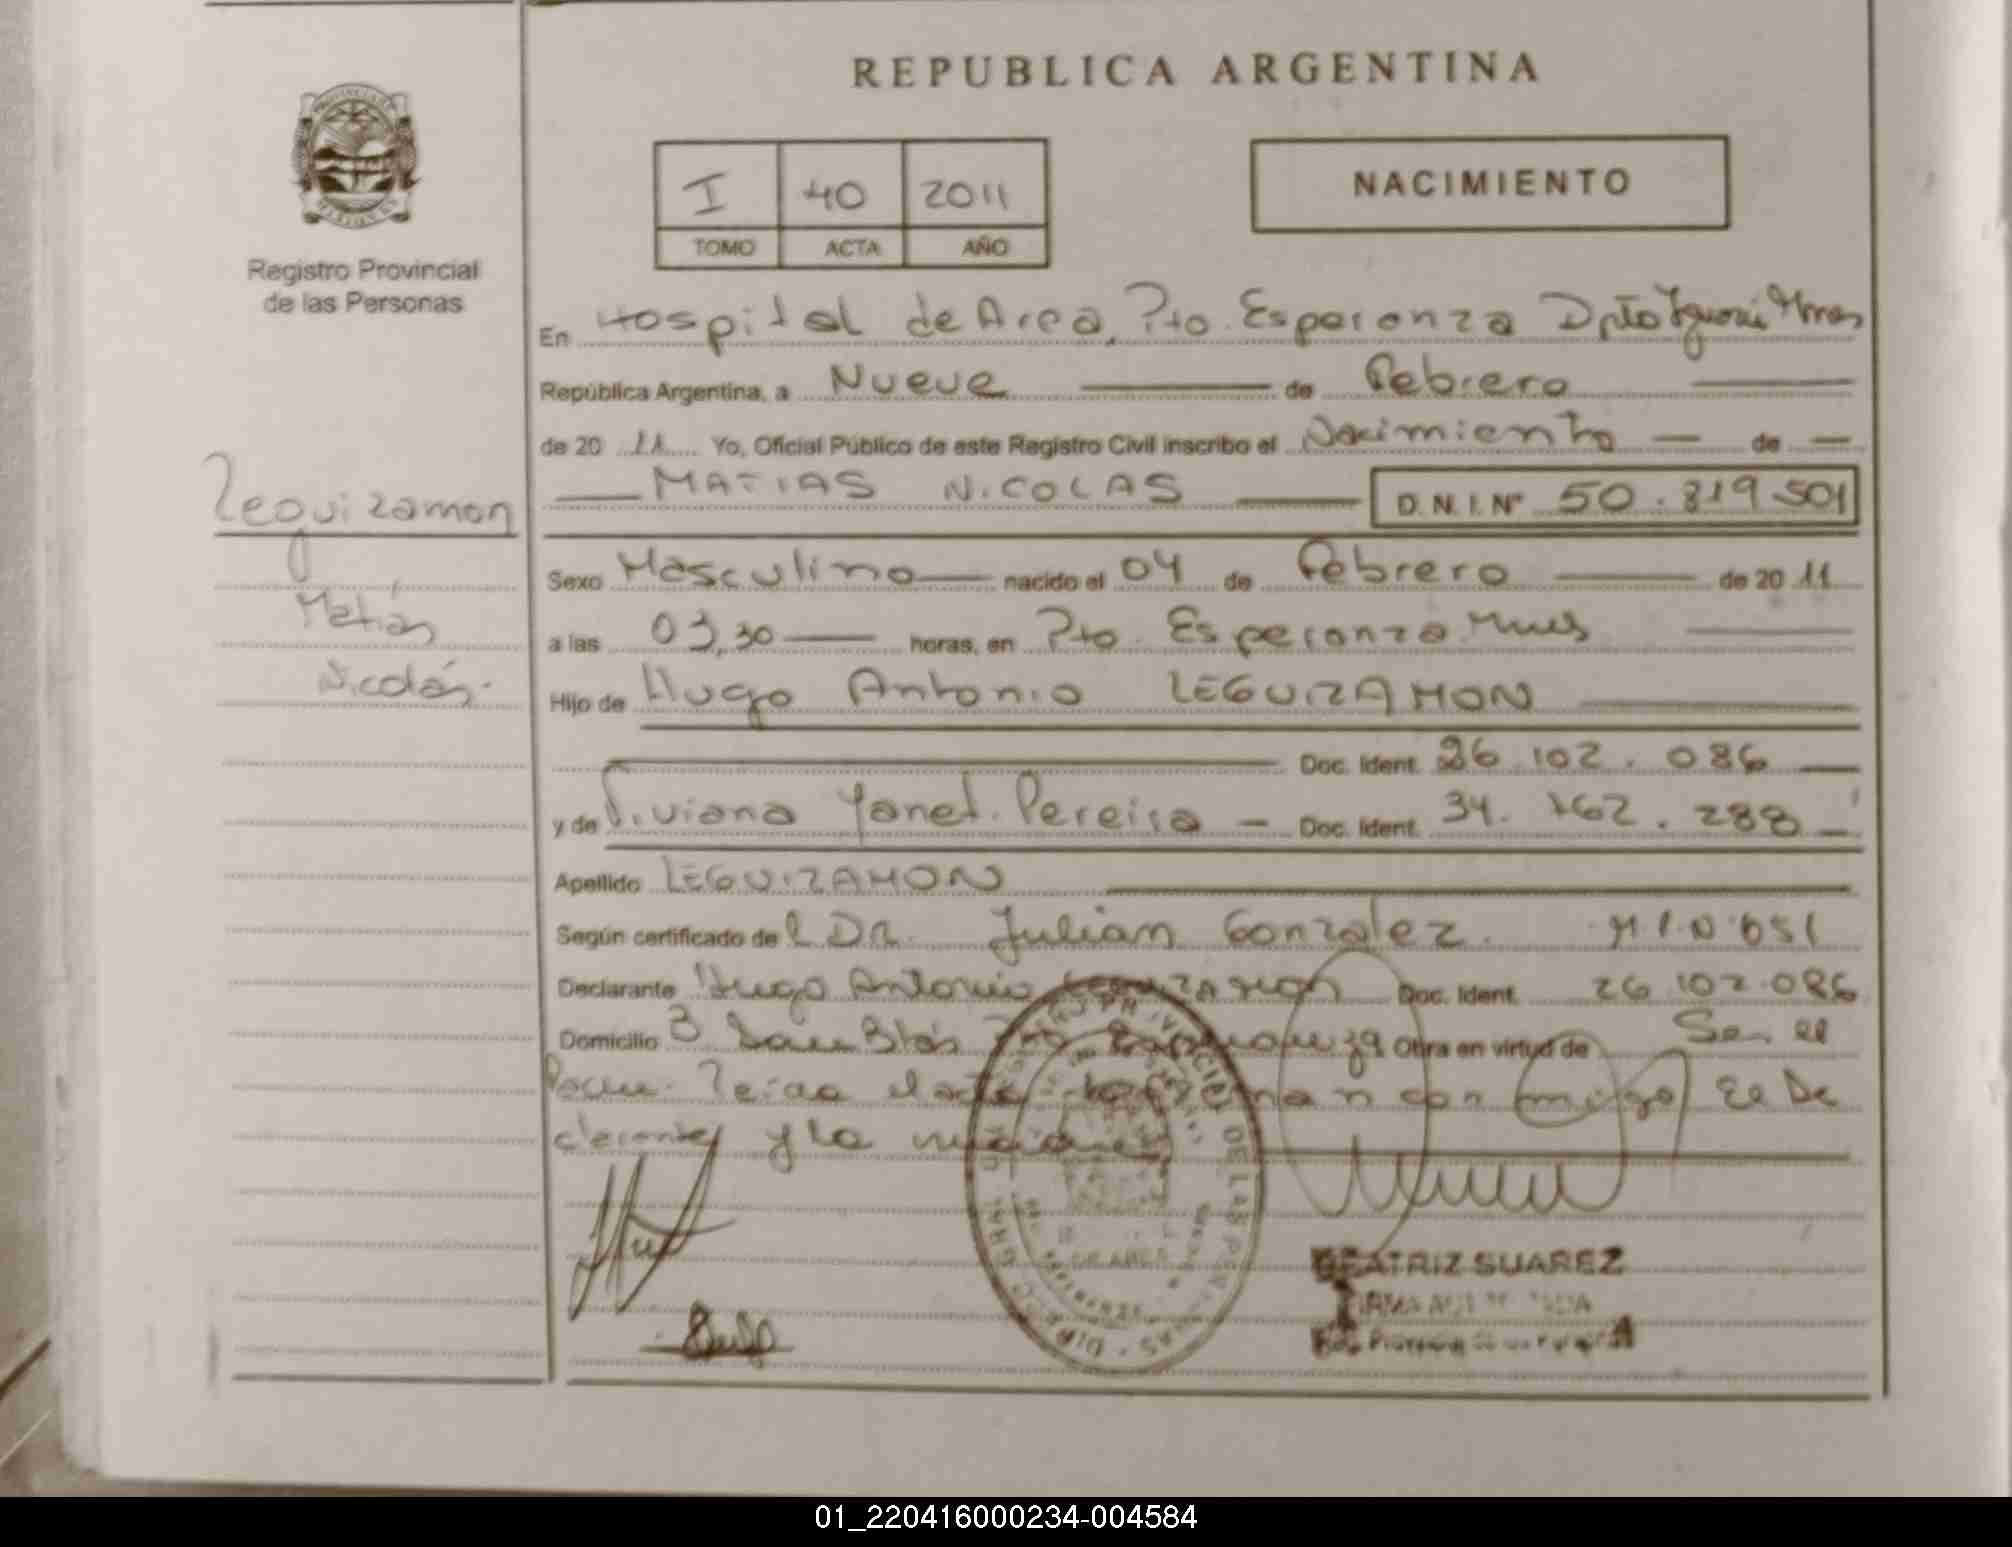 REPUBLICA ARGENTINA
I 40 2011
TOMO ACTA AÑO
NACIMIENTO
Registro Provincial
de las Personas
En Hospital de Area, Pto. Esperanza Dpto Iguazú Mnes
República Argentina, a Nueve de Febrero
de 20 11 Yo, Oficial Público de este Registro Civil inscribo el Nacimiento de
MATIAS NICOLAS D.N.I. Nº 50.819.501
Leguizamon
Matias
Nicolás.
Sexo Masculino nacido el 04 de Febrero de 20 11
a las 03,30 horas, en Pto. Esperanza Mnes
Hijo de Hugo Antonio LEGUIZAMON
Doc. Ident. 26.102.086
y de Viviana Yanet Pereira Doc. Ident. 34.762.288
Apellido LEGUIZAMON
Según certificado de l DR. Julian Gonzalez. M.I.N 651
Declarante Hugo Antonio LEGUIZAMON Doc. Ident. 26.102.086
Domicilio Bº San Blás Pto Esperanza Obra en virtud de Ser el
Padre. Leida el acta la firman conmigo El De
clarante y la
BEATRIZ SUAREZ
FIRMA AUTORIZADA
01_220416000234-004584